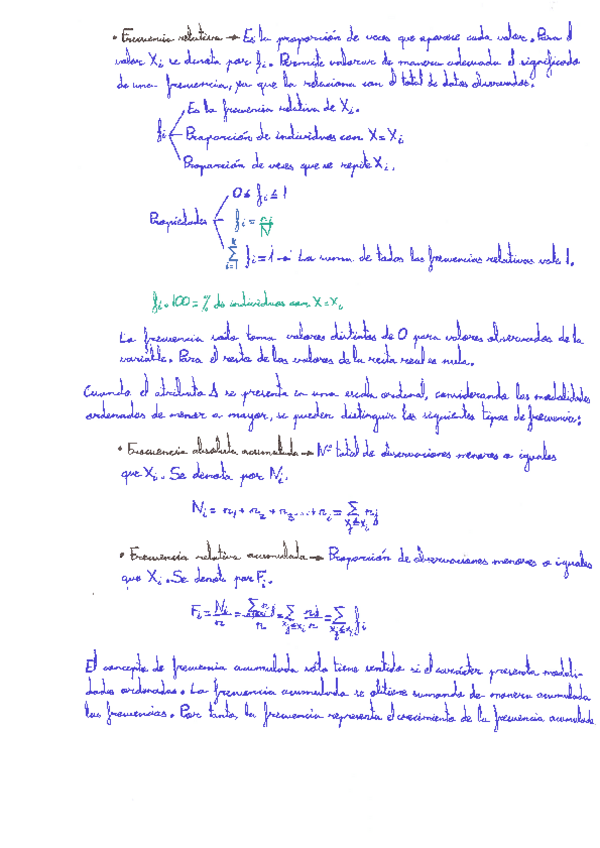 • Frecuencia relativa → Es la proporción de veces que aparece cada valor. Para el
valor Xi se denota por fi. Permite valorar de manera adecuada el significado
de una frecuencia, ya que la relaciona con el total de datos observados.
Es la frecuencia relativa de Xi.
fi Proporción de individuos con X=Xi
Proporción de veces que se repite Xi.
0 ≤ fi ≤ 1
Propiedades fi = ni/N
∑ᵏi=1 fi = 1 → La suma de todas las frecuencias relativas vale 1.
fi·100 = % de individuos con X=xi
La frecuencia solo toma valores distintos de 0 para valores observados de la
variable. Para el resto de los valores de la recta real es nula.
Cuando el atributo A se presenta en una escala ordinal, considerando las modalidades
ordenadas de menor a mayor, se pueden distinguir los siguientes tipos de frecuencia:
• Frecuencia absoluta acumulada → Nº total de observaciones menores o iguales
que Xi. Se denota por Ni.
Ni = n1 + n2 + n3 ... + ni = ∑xj≤xi nj
• Frecuencia relativa acumulada → Proporción de observaciones menores o iguales
que Xi. Se denota por Fi.
Fi = Ni/n = ∑xj≤xi nj/n = ∑xj≤xi nj/n = ∑xj≤xi fi
El concepto de frecuencia acumulada sólo tiene sentido si el carácter presenta modali-
dades ordenadas. La frecuencia acumulada se obtiene sumando de manera acumulada
las frecuencias. Por tanto, la frecuencia representa el crecimiento de la frecuencia acumulada